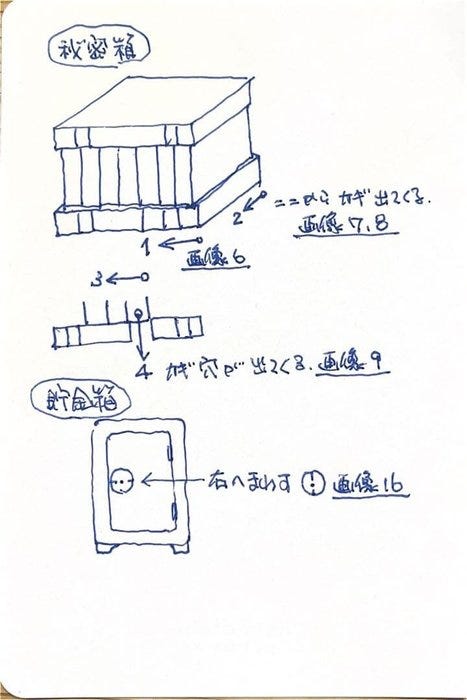 秘密箱
2 ここから カギ出てくる.
画像7,8
1
画像6
3
4 カギ穴が出てくる. 画像9
貯金箱
右へまわす 画像16